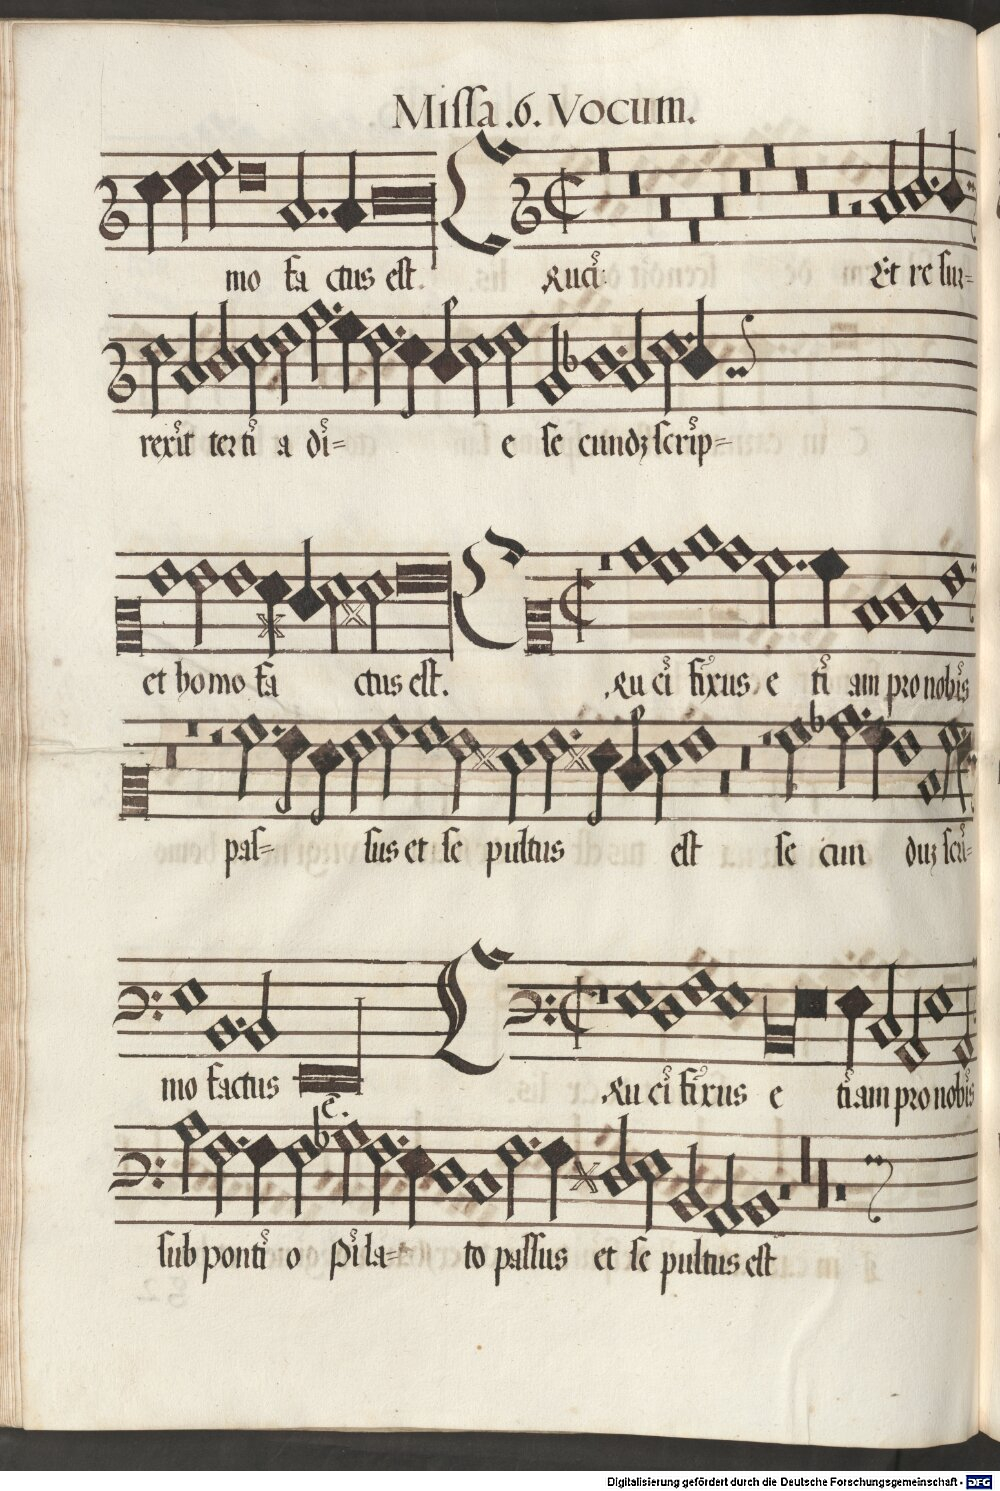 Missa .6. Vocum.
mo fa ctus est. Ruci Et re sur=
rexit terti a di= e se cundz scrip=
et homo fa ctus est. Ru ci fixus e ti am pro nobis
pas= sus et se pultus est se cun duz scri=
mo factus Ru ci fixus e tiam pro nobis
e.
sub ponti o Pila= to passus et se pultus est
Digitalisierung gefördert durch die Deutsche Forschungsgemeinschaft - DFG